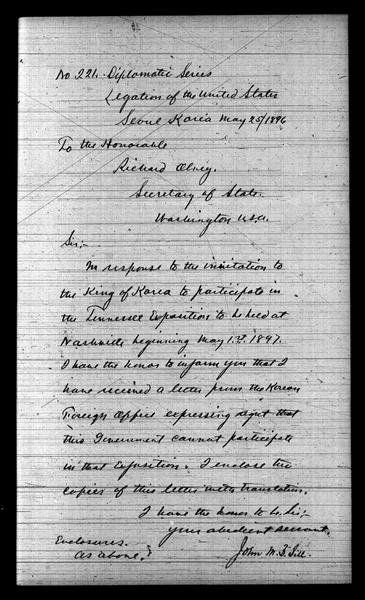 No 221. Diplomatic Series
Legation of the United States
Seoul Korea May 25/1896
To the Honorable
Richard Olney.
Secretary of State.
Washington U.S.A.
Sir:-
In response to the invitation to
the King of Korea to participate in
the Tennessee Exposition to be held at
Nashville beginning May 1st 1897.
I have the honor to inform you that I
have received a letter from the Korean
Foreign Office expressing regret that
this Government cannot participate
in that Exposition. I enclose two
copies of this letter with translation.
I have the honor to be Sir:-
your obedient servant.
Enclosures.
as above.
John M. B. Sill.